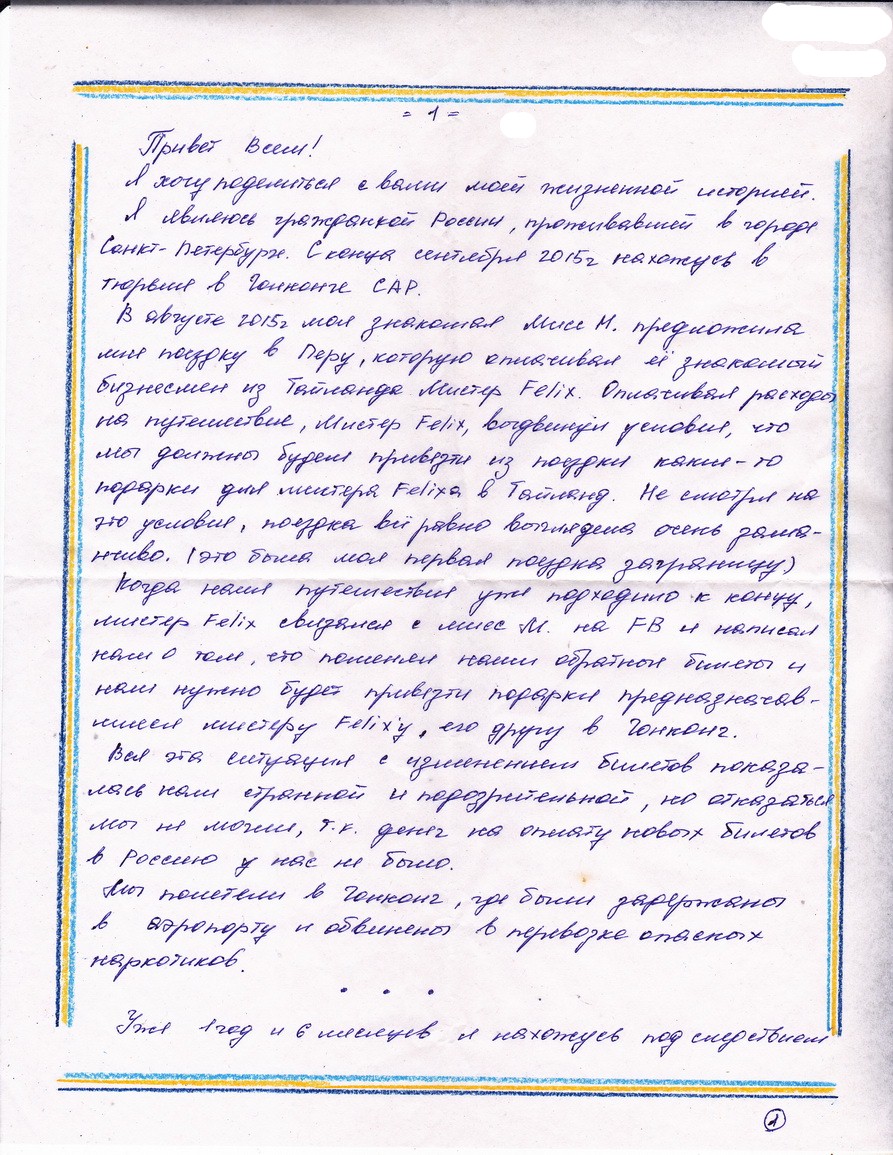 = 1 =
Привет Всем!
Я хочу поделиться с вами моей жизненной историей.
Я являюсь гражданкой России, проживавшей в городе
Санкт-Петербурге. С конца сентября 2015г нахожусь в
тюрьме в Гонконге САР.
В августе 2015г моя знакомая Мисс М. предложила
мне поездку в Перу, которую оплачивал её знакомый
бизнесмен из Тайланда Мистер Felix. Оплачивая расходы
на путешествие, Мистер Felix, выдвинул условия, что
мы должны будем привезти из поездки какие-то
подарки для мистера Felixа в Тайланд. Не смотря на
это условия, поездка всё равно выглядела очень зама-
нчиво. (это была моя первая поездка заграницу)
Когда наше путешествия уже подходило к концу,
мистер Felix связался с мисс М. на FB и написал
нам о том, что поменял наши обратные билеты и
нам нужно будет привезти подарки предназначав-
шиеся мистеру Felix'у, его другу в Гонконг.
Вся эта ситуация с изменением билетов показа-
лась нам странной и подозрительной, но отказаться
мы не могли, т.к. денег на оплату новых билетов
в Россию у нас не было.
Мы полетели в Гонконг, где были задержаны
в аэропорту и обвинены в перевозке опасных
наркотиков.
. . .
Уже 1 год и 6 месяцев я нахожусь под следствием
1